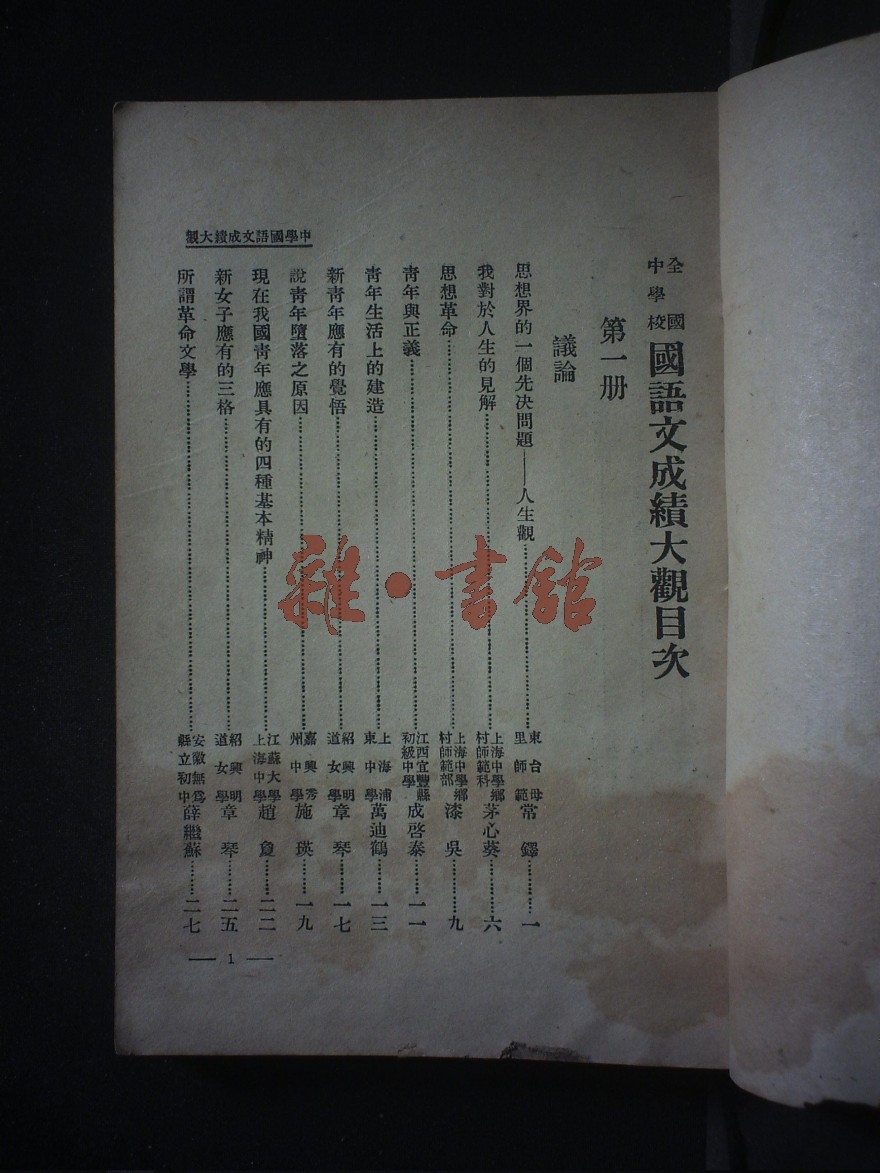 全國中學校國語文成績大觀目次
第一册
議論
思想界的一個先决問題——人生觀……東台母里師範 常鐸……一
我對於人生的見解……上海中學鄉村師範科 茅心葵……六
思想革命……上海中學鄉村師範部 漆吳……九
靑年與正義……江西宜豐縣初級中學 成啓泰……一一
靑年生活上的建造……上海浦東中學 萬迪鶴……一三
新靑年應有的覺悟……紹興明道女學 章琴……一七
說靑年墮落之原因……嘉興秀州中學 施瑛……一九
現在我國靑年應具有的四種基本精神……江蘇大學上海中學 趙敻……二二
新女子應有的三格……紹興明道女學 章琴……二五
所謂革命文學……安徽無爲縣立初中 薛繼蘇……二七
中學國語文成績大觀
— 1 —
雜·書館